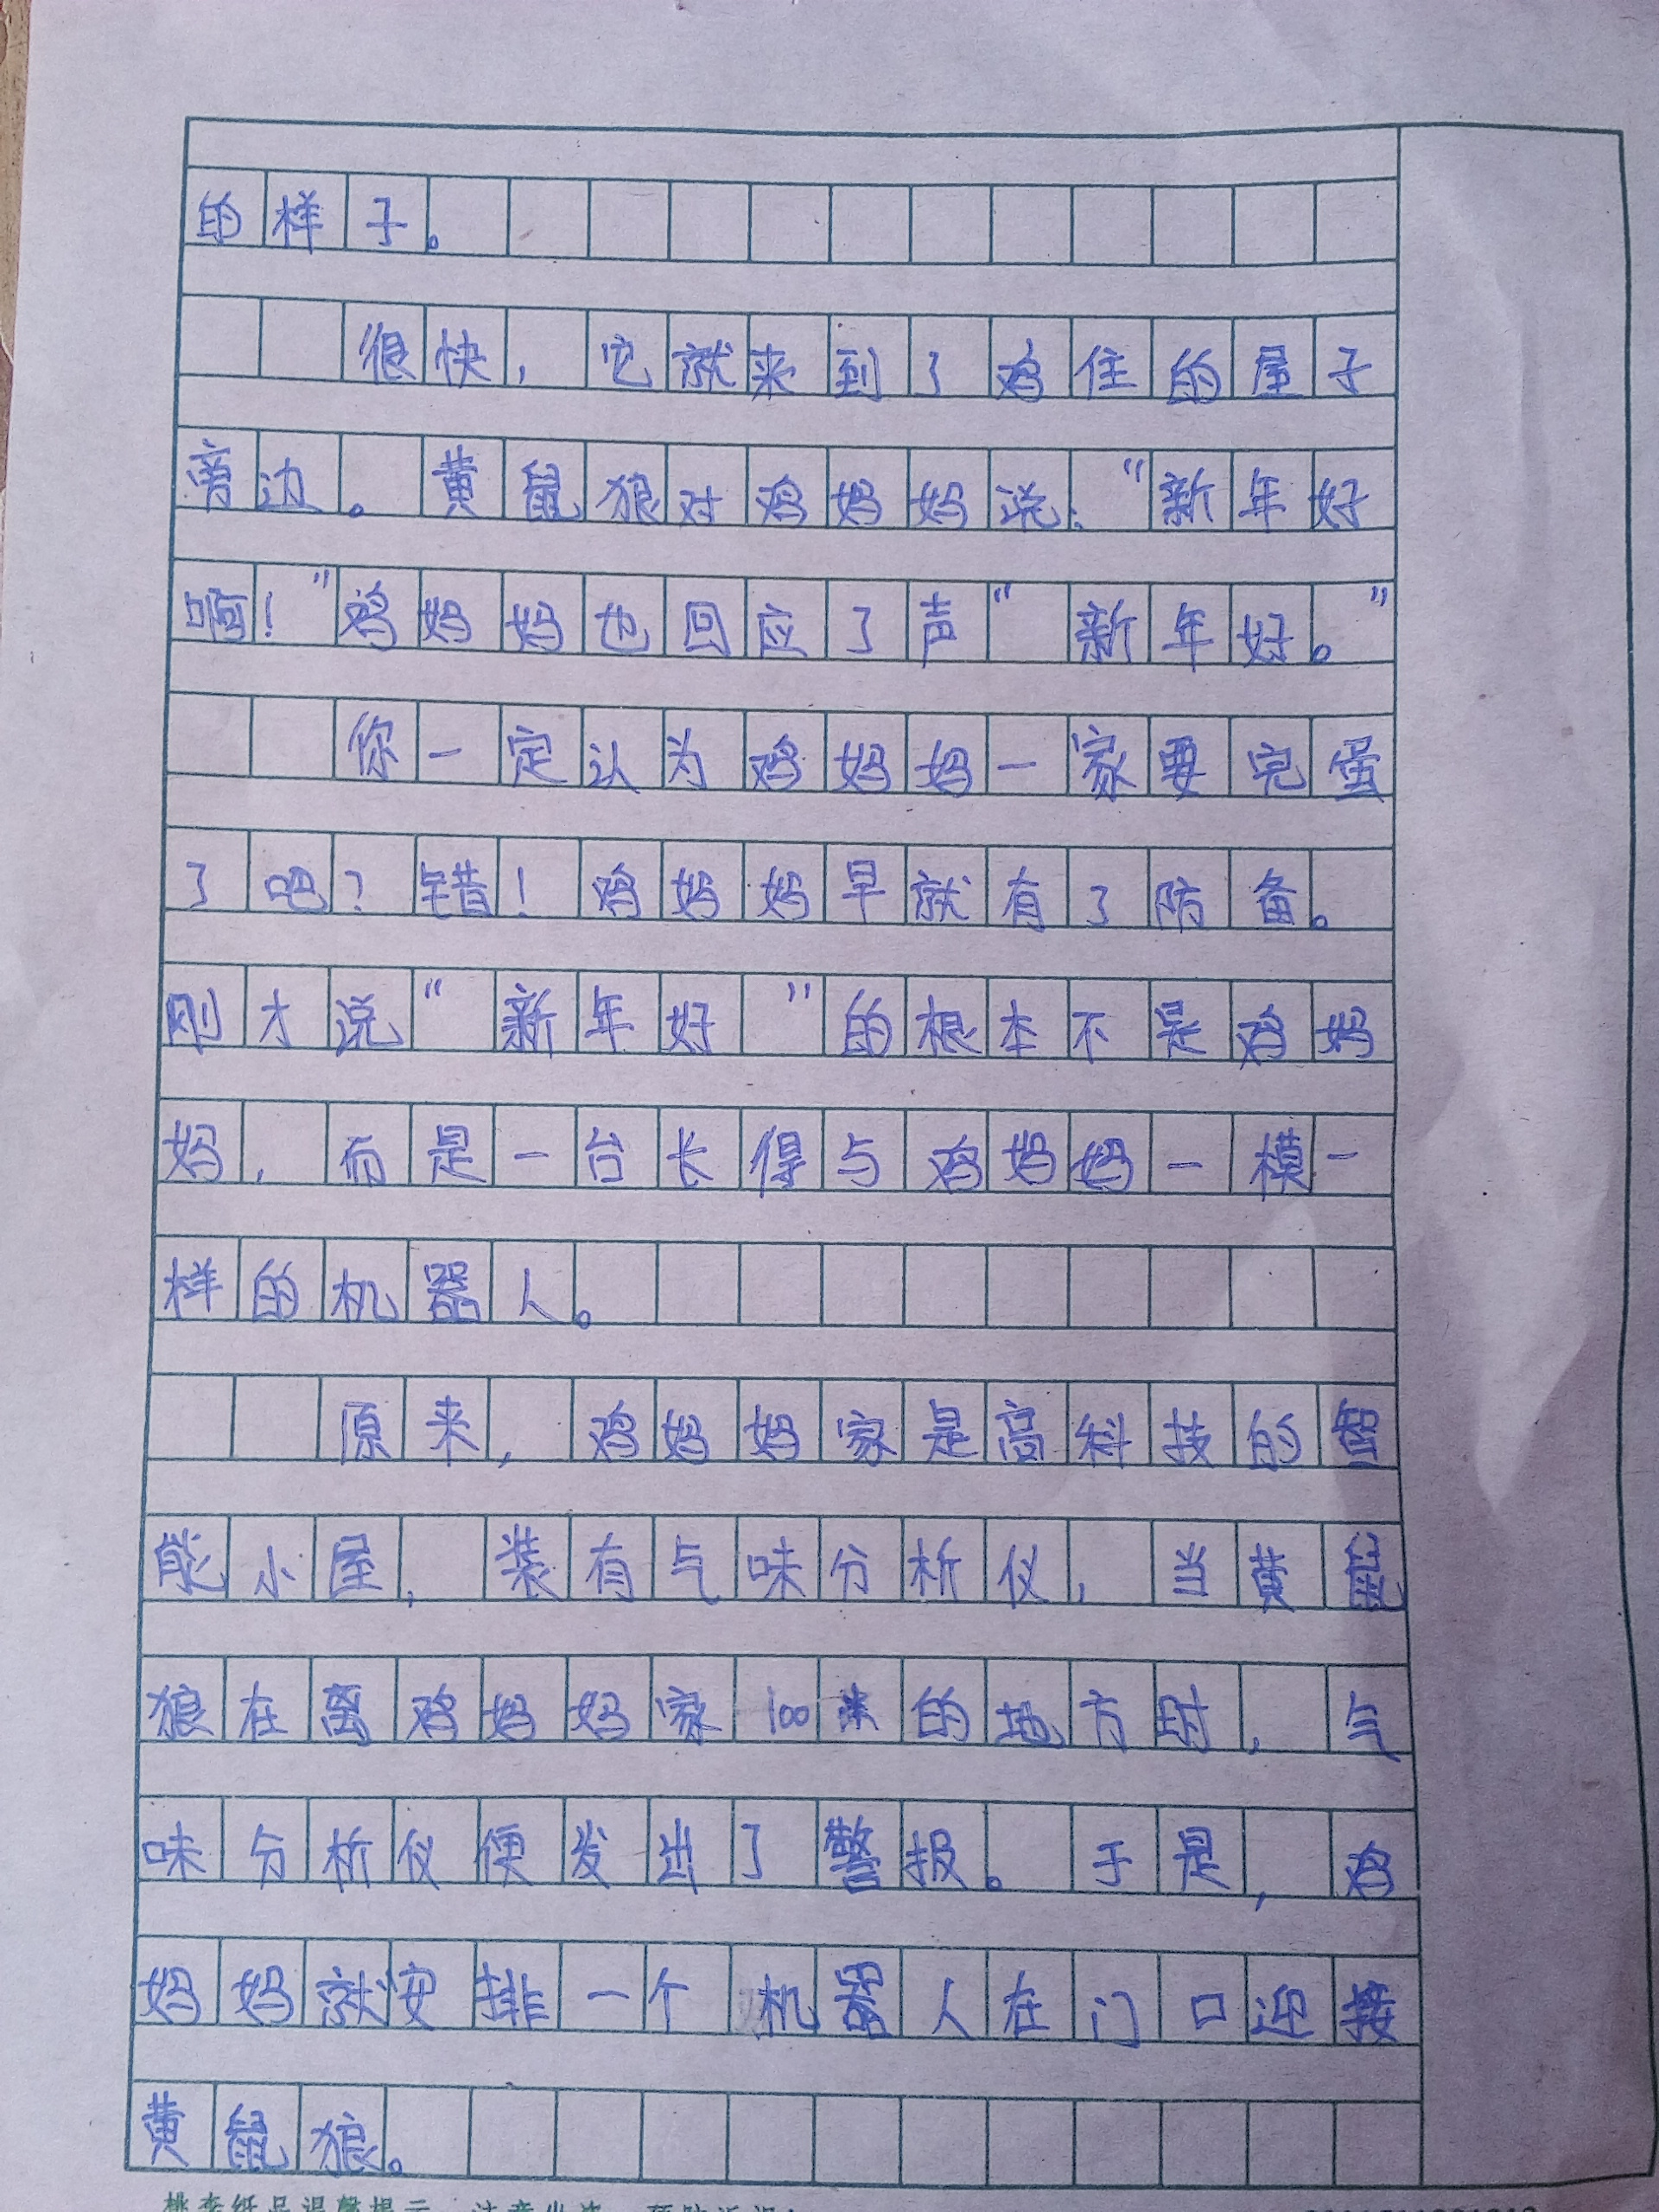 的样子。
很快，它就来到了鸡住的屋子
旁边。黄鼠狼对鸡妈妈说：“新年好
啊！”鸡妈妈也回应了声“新年好。”
你一定认为鸡妈妈一家要完蛋
了吧？错！鸡妈妈早就有了防备。
刚才说“新年好”的根本不是鸡妈
妈，而是一台长得与鸡妈妈一模一
样的机器人。
原来，鸡妈妈家是高科技的智
能小屋，装有气味分析仪，当黄鼠
狼在离鸡妈妈家100米的地方时，气
味分析仪便发出了警报。于是，鸡
妈妈就安排一个机器人在门口迎接
黄鼠狼。